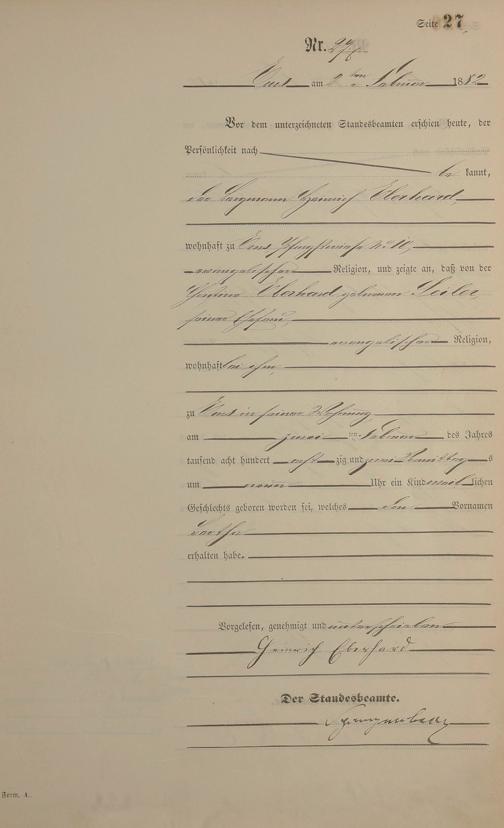 Seite 27
Nr. 27
am 2 ten Februar 1882
Vor dem unterzeichneten Standesbeamten erschien heute, der
Persönlichkeit nach
be kannt,
der Bergmann Heinrich Eberhard,
wohnhaft zu
evangelischer Religion, und zeigte an, daß von der
Eberhard, geborenen
seiner Ehefrau,
evangelischer Religion,
wohnhaft bei ihm,
zu in seiner Wohnung
am zwei ten Februar des Jahres
tausend acht hundert acht zig und zwei s
um neun Uhr ein Kind weib lichen
Geschlechts geboren worden sei, welches den Vornamen
erhalten habe.
Vorgelesen, genehmigt und unterschrieben
Heinrich Eberhard
Der Standesbeamte.
Form. A.